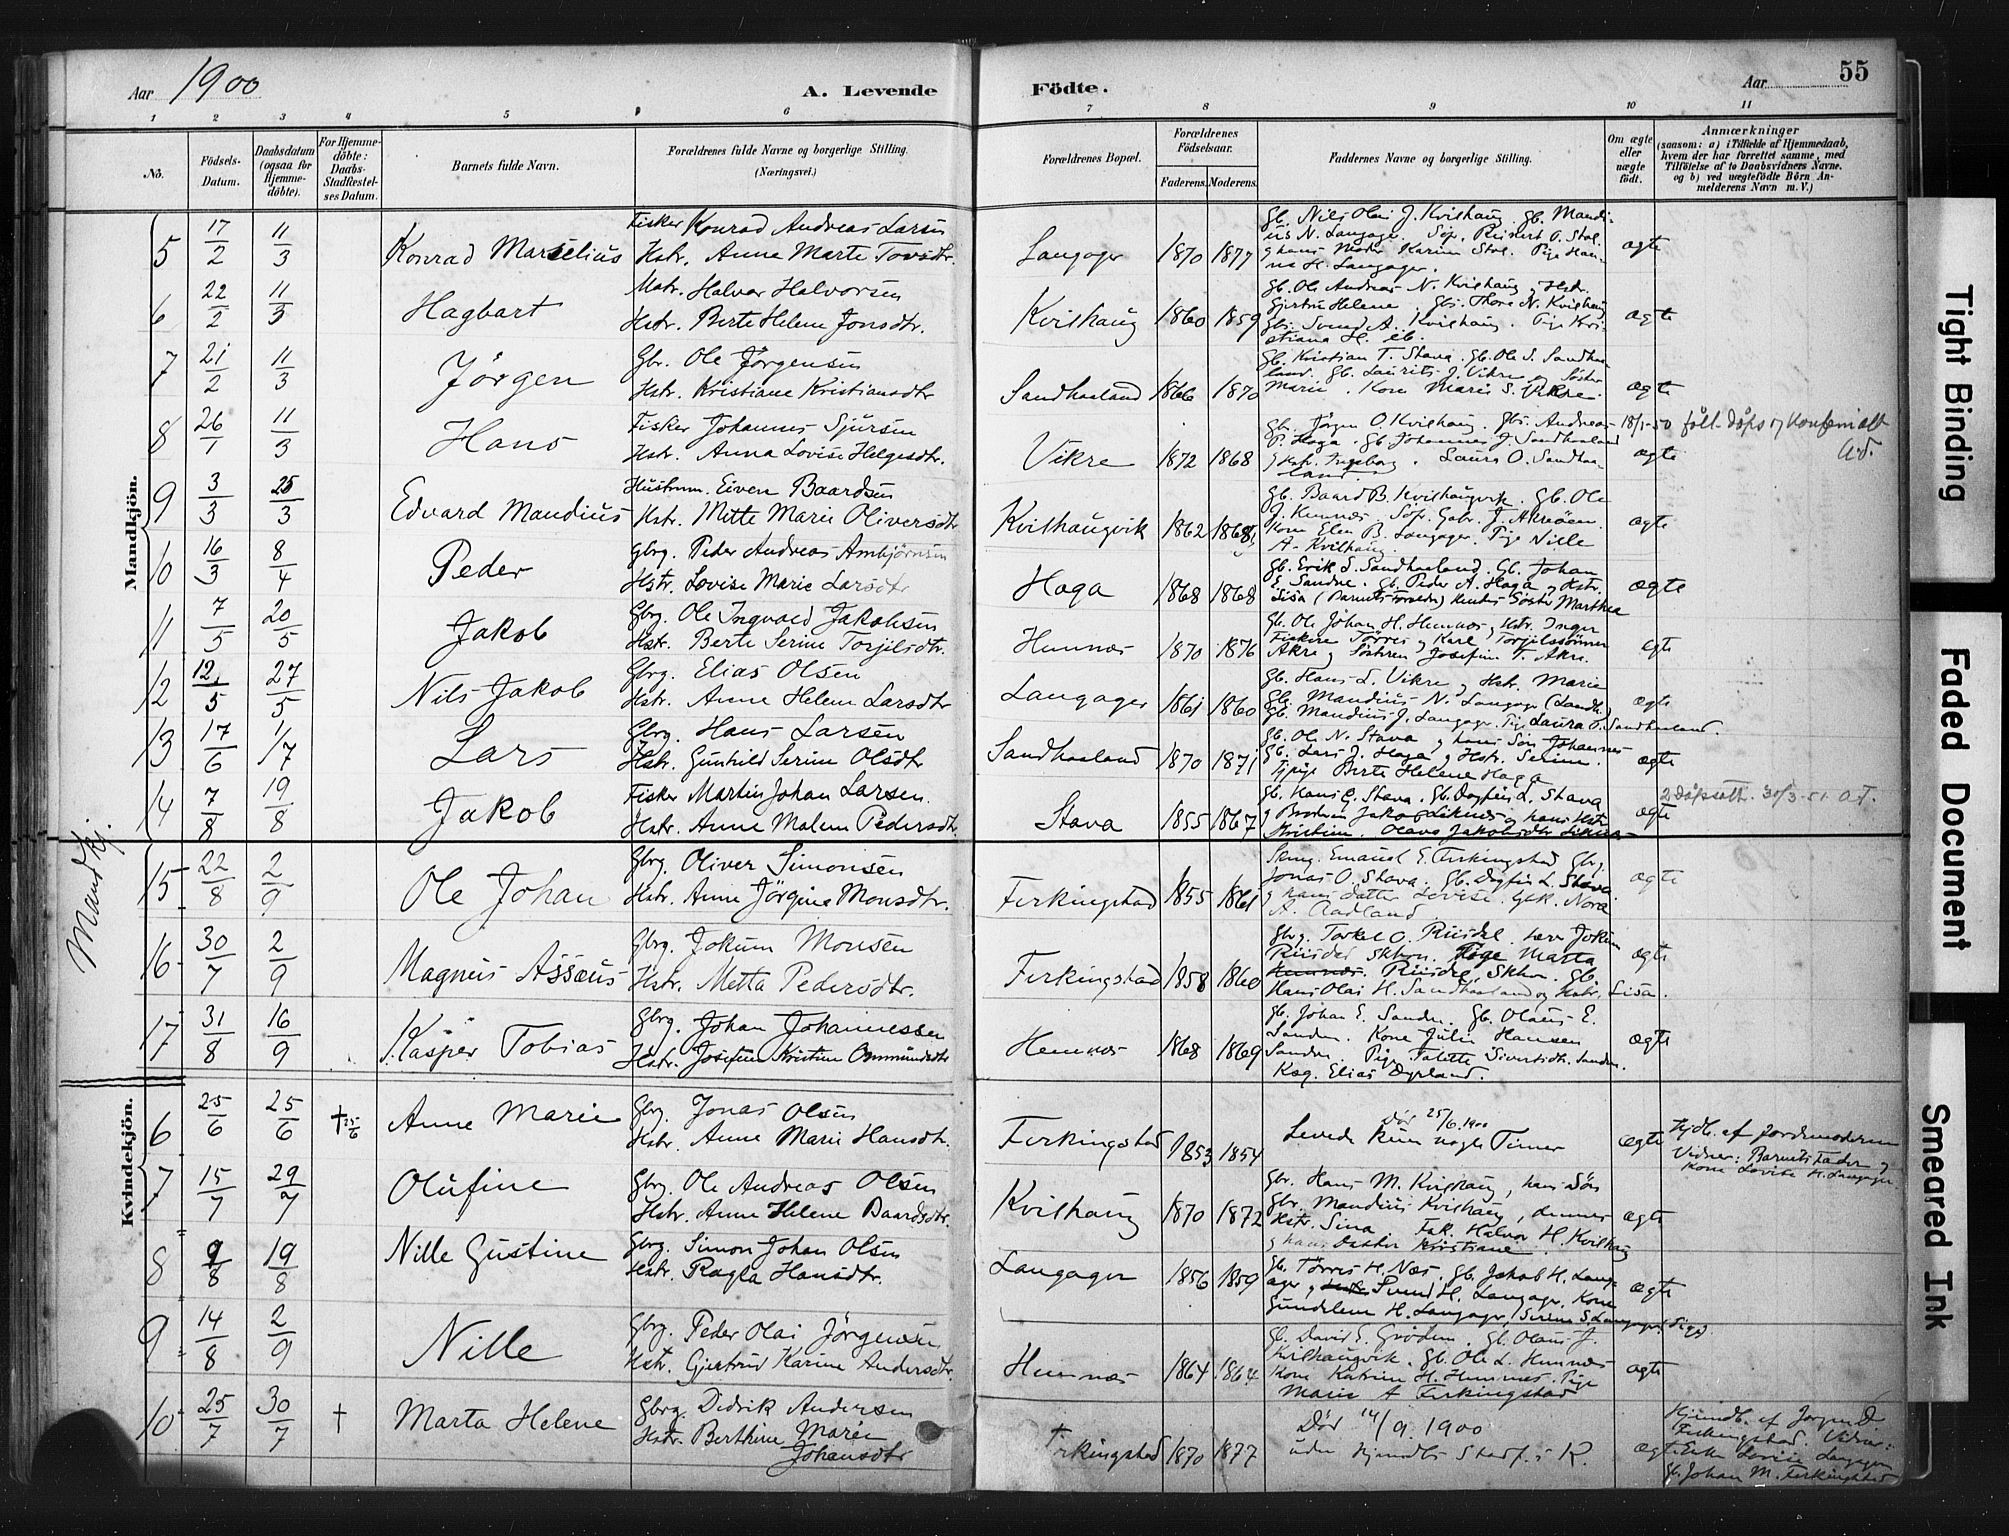 Aar 1900
A. Levende
Födte.
Aar
55
1 2 3 4 5 6 7 8 9 10 11
No.
Födsels-
Datum.
Daabsdatum
(ogsaa for
Hjemme-
döbte).
For Hjemme-
döbte:
Daabs-
Stadfæstel-
ses Datum.
Barnets fulde Navn.
Forældrenes fulde Navne og borgerlige Stilling.
(Næringsvei.)
Forældrenes Bopæl.
Forældrenes
Födselsaar.
Faderens. Moderens.
Faddernes Navne og borgerlige Stilling.
Om ægte
eller
uægte
födt.
Anmærkninger
(saasom: a) i Tilfælde af Hjemmedaab,
hvem der har forrettet samme, med
Tilföielse af to Daabsvidners Navne,
og b) ved uægtefödte Börn An-
melderens Navn m. V.)
Mandkjön.
5 17/2 11/3 Konrad Marselius
Fisker Konrad Andreas Larsen
Hstr. Anne Marte Tovsdtr.
Langager 1870 1877
Gb. Nils Olai J. Kvilhaug. Gb. Mandi-
us N. Langager.
na H. Langager.
ægte
6 22/2 11/3 Hagbart
Matr. Halvor Halvorsen
Hstr. Berte Helene Jonsdtr.
Kvilhaug 1860 1859
Gb. Ole Andreas N. Kvilhaug, Hstr.
Gjertru Helene. Gbr. Thore N. Kvilhaug
Gbr. Svend A. Kvilhaug. Pige Kri-
stiana H. ib.
ægte
7 21/2 11/3 Jörgen
Gbr. Ole Jörgensen
Hstr. Kristiane Kristiansdtr
Sandhaaland 1866 1870
Gb. Kristian T. Stava. Gb. Ole S. Sandhaa-
land. Gb. Laurits J. Vikre og Söster
Marie. Kone Maris S. Vikre.
ægte
8 26/1 11/3 Hans
Fisker Johannes Sjursen
Hstr. Anna Lovise Helgesdtr.
Vikre 1872 1868
Gb. Jörgen O. Kvilhaug. Gbr. Andreas
P. Haga. Gb. Johannes J. Sandhaaland
og Hstr. Ingeborg. Laura O. Sandhaa-
land.
ægte
18/1-50
9 3/3 25/3 Edvard Mandius
Husmm. Eiven Baardsen
Hstr. Mette Marie Oliversdtr
Kvilhaugvik 1862 1868
Gb. Baard B. Kvilhaugvik. Gb. Ole
J. Hemnes. Söf. Gabr. J. Akreöen.
Kone Elen B. Langager. Pige Nille
A. Kvilhaug.
ægte
10 16/3 8/4 Peder
Gbrg. Peder Andreas Ambjörnsen
Hstr. Lovise Marie Larsdtr
Haga 1868 1868
Gb. Erik S. Sandhaaland. Gb. Johan
E. Sandve. Gb. Peder A. Haga og Hstr.
Lisa (Barnets Forældre) hendes Söster Marthea
ægte
11 7/5 20/5 Jakob
Gbrg. Ole Ingvald Jakobsen
Hstr. Berte Serine Torjilsdtr.
Hemnes 1870 1876
Gb. Ole Johan H. Hemnes, Hstr. Inger
Fiskere Törres og Karl Torjilssönner
Akre og Söstren Josefine T. Akre.
ægte
12 12/5 27/5 Nils Jakob
Gbrg. Elias Olsen
Hstr. Anne Helene Larsdtr
Langager 1861 1860
Gb. Hans L. Vikre og Hstr. Marie
Gb. Mandius N. Langager (Sandh.)
Gb. Mandius J. Langager. Pige Laura O. Sandhaaland.
ægte
13 17/6 1/7 Lars
Gbrg. Hans Larsen
Hstr. Gunhild Serine Olsdtr
Sandhaaland 1870 1871
Gb. Ole N. Stava og hans Sön Johannes
Gb. Lars J. Haga og Hstr. Serine.
Tjpige Berte Helene Haga
ægte
14 7/8 19/8 Jakob
Fisker Martin Johan Larsen.
Hstr. Anne Malene Pedersdtr.
Stava 1855 1867
Gb. Hans G. Stava. Gb. Dagfin L. Stava
og Broderen Jakob Liknes og hans Hstr.
Kristine. Olava Jakobsdtr Liknes
ægte
Mandkj.
15 22/8 2/9 Ole Johan
Gbrg. Oliver Simonsen
Hstr. Anne Jörgine Monsdtr.
Ferkingstad 1855 1861
Emanuel E. Ferkingstad Gbrg.
Jonas O. Stava. Gb. Dagfin L. Stava
og hans Datter Lovise. Gbk. Nora
A. Aadland
ægte
16 30/7 2/9 Magnus Assæus
Gbrg. Jokum Monsen
Hstr. Metta Pedersdtr.
Ferkingstad 1858 1860
Gbrg. Torkel O. Riisdal. Lærer Jokim
Riisdal Skhvn. Pige Marta
Riisdal, Skhvn. Gb.
Hans Olai H. Sandhaaland og Hstr. Lisa.
ægte
17 31/8 16/9 Kasper Tobias
Gbrg. Johan Johannessen
Hstr. Josefine Kristine Ommundsdtr
Hemnes 1868 1869
Gb. Johan E. Sandve. Gb. Olaus E.
Sandve. Kone Julie Hansen
Sandve. Pige Talette Sivertsdtr. Sandve.
Elias Dyrland.
ægte
Kvindekjön.
6 25/6 25/6 † 25/6 Anne Marie
Gbrg. Jonas Olsen
Hstr. Anne Marie Hansdtr.
Ferkingstad 1853 1854
Död 25/6 1900
Levede kun nogle Timer
ægte
Hjdb. af Jordmoderen
Vidner: Barnets Fader og
Kone Lovise H. Langager.
7 15/7 29/7 Olufine
Gbrg. Ole Andreas Olsen
Hstr. Anne Helene Baardsdtr.
Kvilhaug 1870 1872
Gbr. Hans M. Kvilhaug, hans Sön
Gbr. Mandius Kvilhaug, dennes
Hstr. Sina. Halvor H. Kvilhaug
og hans Datter Kristiane.
ægte
8 9/8 19/8 Nille Gustine
Gbrg. Simon Johan Olsen
Hstr. Ragla Hansdtr.
Langager 1856 1859
Gb. Törres H. Næs. Gb. Jakob H. Lang-
ager og Svend H. Langager. Kone
Gundelene H. Langager, Serena S. Langager (Pige)
ægte
9 14/8 2/9 Nille
Gbrg. Peder Olai Jörgensen
Hstr. Gjertrud Karine Andersdtr
Hemnes 1864 1864
Gb. David E. Grödem. Gb. Olaus J.
Kvilhaugvik. Gb. Ole L. Hemnes
Kone Katrine H. Hemnes. Pige
Marie A Ferkingstad
ægte
10 25/7 30/7 † Marta Helene
Gbrg. Didrik Andersen
Hstr. Berthine Marie
Johansdtr
Ferkingstad 1870 1877
Död 14/9 1900
uden Hjemdbs Stadf. i K.
ægte
Hjemdb. af Jörgen D
Ferkingstad. Vidner:
Enke Lovise Langager
Gb. Johan M. Ferkingstad
Tight Binding
Faded Document
Smeared Ink